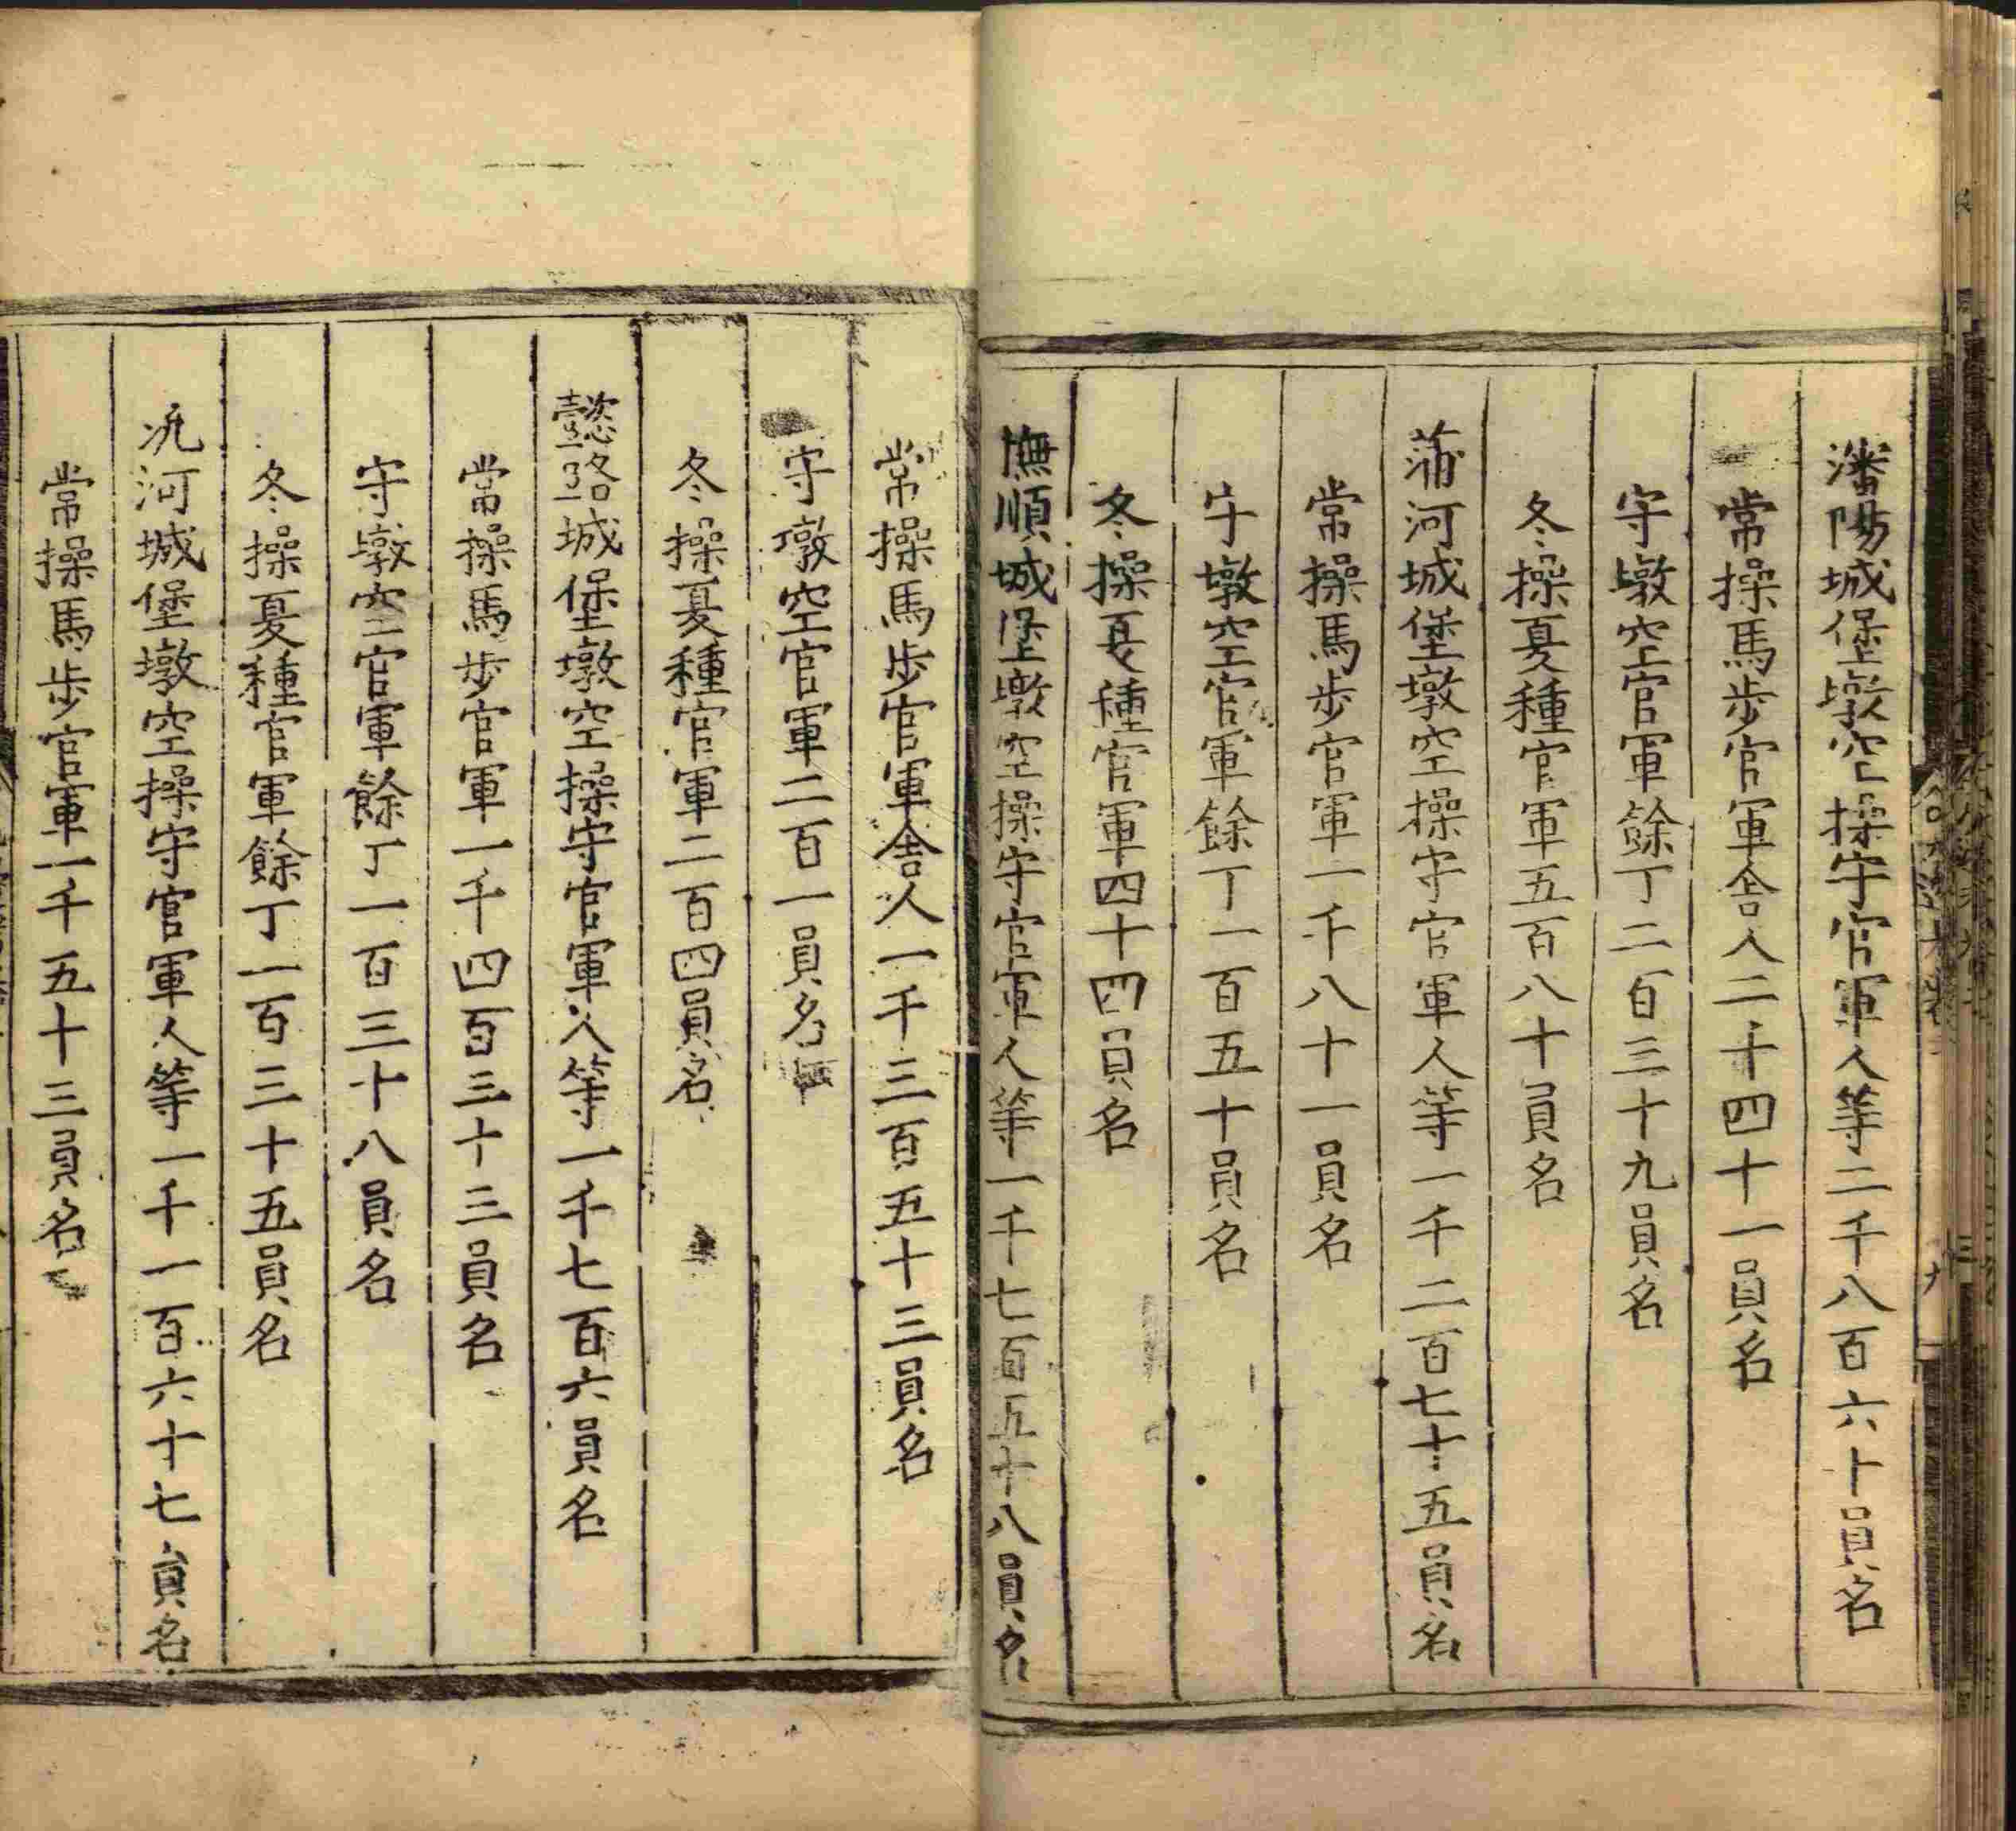 瀋陽城堡墩空操守官軍人等二千八百六十員名
常操馬步官軍舍人二千四十一員名
守墩空官軍餘丁二百三十九員名
冬操夏種官軍五百八十員名
蒲河城堡墩空操守官軍人等一千二百七十五員名
常操馬步官軍一千八十一員名
守墩空官軍餘丁一百五十員名
冬操夏種官軍四十四員名
撫順城堡墩空操守官軍人等一千七百五十八員名
常操馬步官軍舍人一千三百五十三員名
守墩空官軍二百一員名
冬操夏種官軍二百四員名
懿路城堡墩空操守官軍人等一千七百六員名
常操馬步官軍一千四百三十三員名
守墩空官軍餘丁一百三十八員名
冬操夏種官軍餘丁一百三十五員名
汎河城堡墩空操守官軍人等一千一百六十七員名
常操馬步官軍一千五十三員名